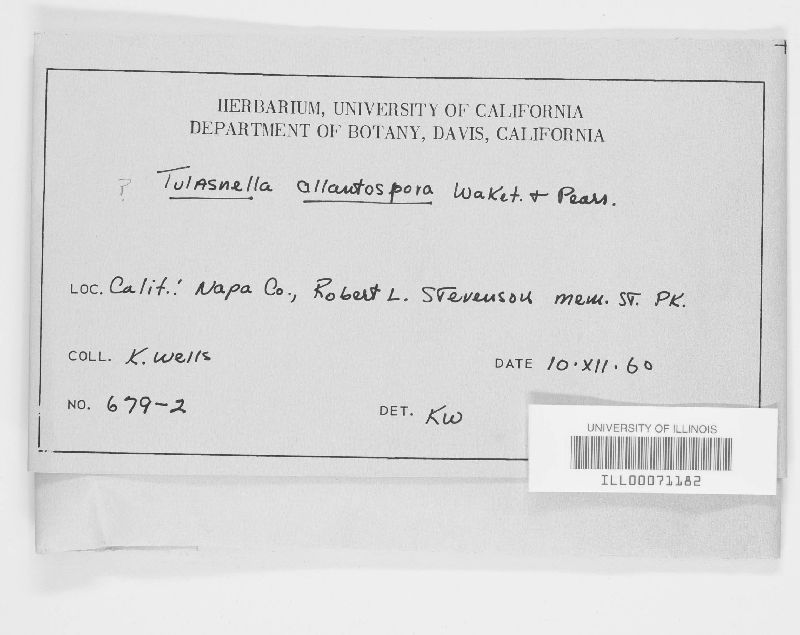 HERBARIUM, UNIVERSITY OF CALIFORNIA
DEPARTMENT OF BOTANY, DAVIS, CALIFORNIA
? Tulasnella allantospora Wakef. & Pears.
LOC. Calif.: Napa Co., Robert L. Stevenson mem. St. Pk.
COLL. K. Wells DATE 10.XII.60
NO. 679-2 DET. KW
UNIVERSITY OF ILLINOIS
ILL00071182